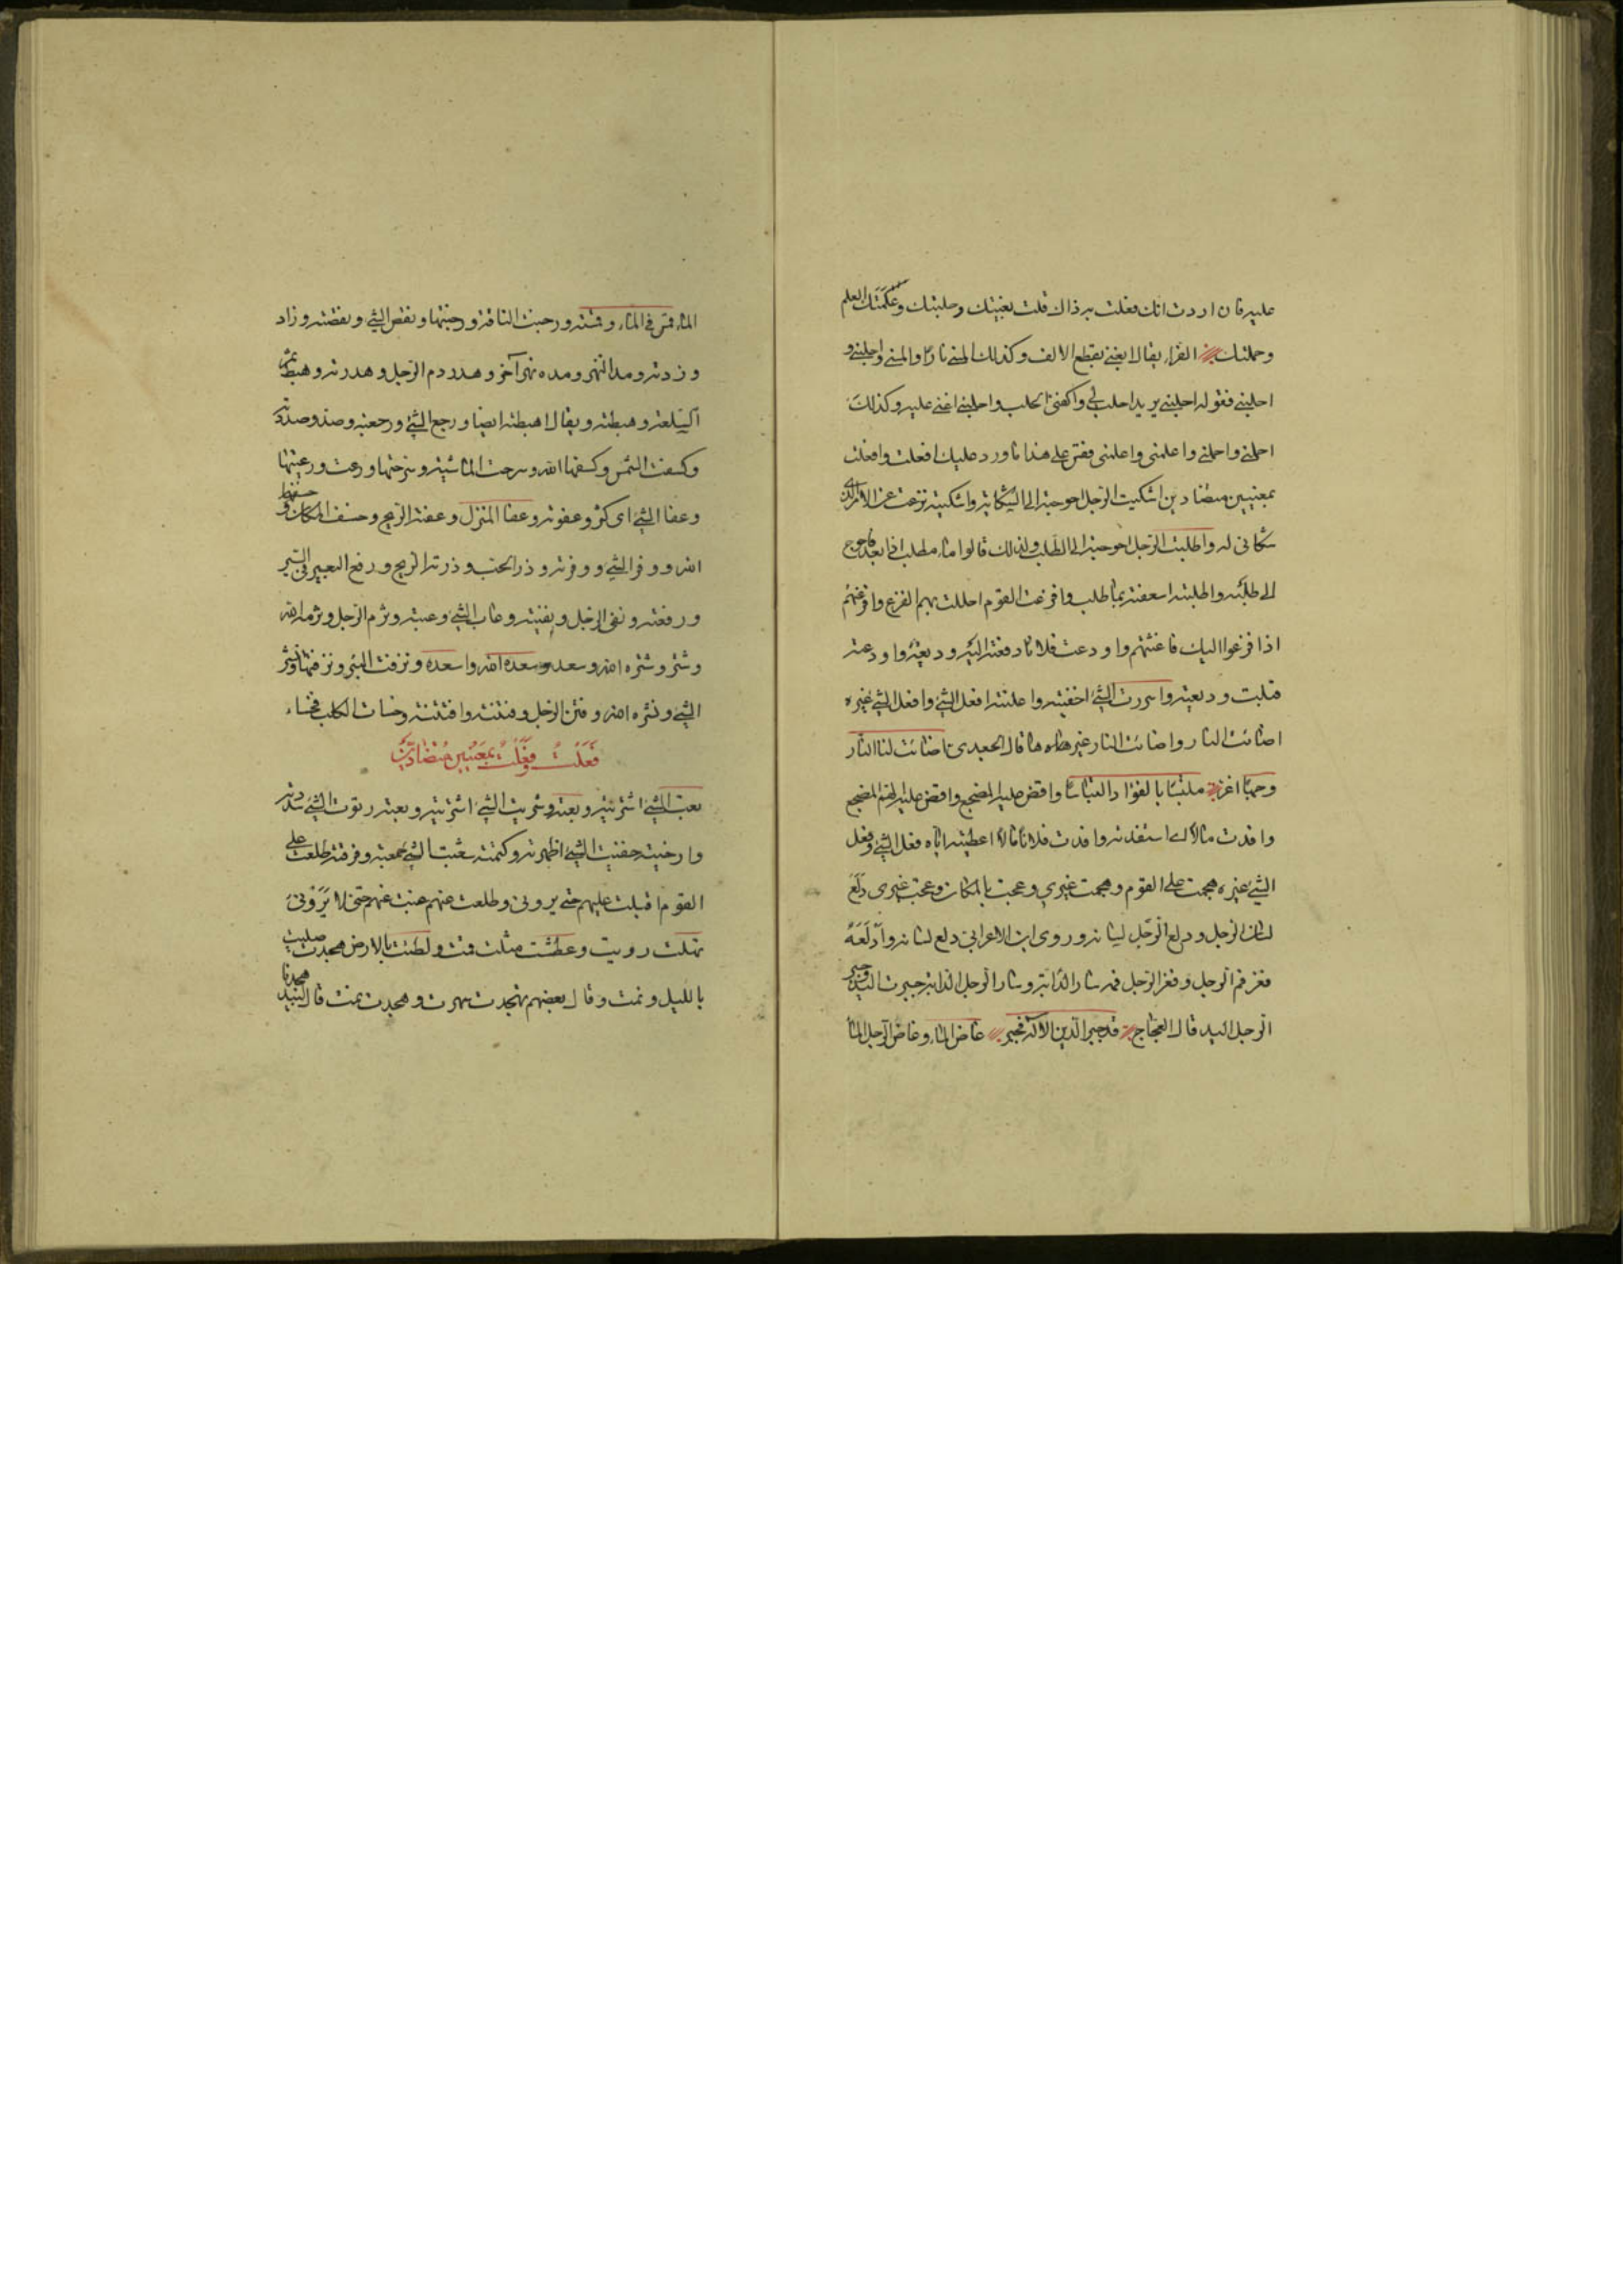 عليه فان اردت انك فعلت به ذاك قلت بغيتك وحلبتك وعكمتك العلم
وحملتك الفراء يقال ابغني بقطع الالف وكذلك المسني نارا والمسني واحلبني و
احلبني فقوله احلبني يريد احلب لي واكفني الحلب واحلبني اعني عليه وكذلك
احملني واحملني واعكمني واعكمني فقس على هذا ما ورد عليك افعلت وافعلت
بمعنيين متضادين اشكيت الرجل احوجته الى الشكاية واشكيته نزعت عن الامر الذي
شكاني له واطلبت الرجل احوجته الى الطلب ولذلك قالوا ماء مطلب اذا بعد فاحوج
الى طلبه واطلبته اسعفته بما طلب وافزعت القوم احللت بهم الفزع وافزعتهم
اذا فزعوا اليك فاغثتهم واودعت فلانا مالا دفعته اليه وديعة واودعته
قبلت وديعته واسررت الشيء اخفيته واعلنته افعل الشيء وافعل الشيء غيره
اضائت النار واضائت النار غيرها قال الجعدي اضائت لنا النار
وجها اغر ملتبسا بالفؤاد التباسا واقض عليه المضجع واقض عليه الهم المضجع
وافدت مالا اي استفدته وافدت فلانا مالا اعطيته اياه فعل الشيء وفعل
الشيء غيره هجمت على القوم وهجمت غيري وعجت بالمكان وعجت غيري دلع
لسان الرجل ودلع الرجل لسانه وروى ابن الاعرابي دلع لسانه وادلعه
فغر فم الرجل وفغر الرجل فمه سار الدابة وسار الرجل الدابة جبرت اليد وجبر
الرجل اليد قال العجاج قد جبر الدين الاله فجبر غاض الماء وغاض الرجل الماء
الماء قمس في الماء وقمسته ورجنت الناقة ورجنتها ونقص الشيء ونقصته وزاد
وزدته ومد النهر ومده نهر آخر وهدر دم الرجل وهدرته وهبط ثمن
السلعة وهبطته ويقال اهبطته ايضا ورجع الشيء ورجعته وصد وصددته
وكسفت الشمس وكسفها الله وسرحت الماشية وسرحتها ورعت ورعيتها
وعفا الشيء اي كثر وعفوته وعفا المنزل وعفته الريح وخسف المكان وخسفه
الله ووفر الشيء ووفرته وذرا الحب وذرته الريح ورفع البعير في السير
ورفعته ونفى الرجل ونفيته وعاب الشيء وعبته وثرم الرجل وثرمه الله
وشتر وشتره الله وسعد وسعده الله واسعده ونزفت البئر ونزفتها ونشر
الشيء ونشره الله وفتن الرجل وفتنته وافتنته وخسات الكلب فخساء
فعلت وفعلت بمعنيين متضادين
بعت الشيء اشتريته وبعته وشريت الشيء اشتريته وبعته رتوت الشيء شددته
وارخيته خفيت الشيء اظهرته وكتمته شعبت الشيء جمعته وفرقته طلعت على
القوم اقبلت عليهم حتى يروني وطلعت عنهم غبت عنهم حتى لا يروني
نهلت رويت وعطشت مثلت قمت ولطئت بالارض هجدت صليت
بالليل ونمت وقال بعضهم تهجدت سهرت وهجدت نمت قال لبيد هجدنا